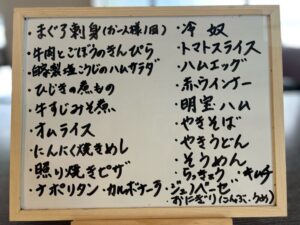 ・まぐろ刺身(お一人様1回)
・牛肉とごぼうのきんぴら
・自家製塩こうじのハムサラダ
・ひじきの煮もの
・牛すじみそ煮
・オムライス
・にんにく焼きめし
・照り焼きピザ
・ナポリタン・カルボナーラ・ジェノベーゼ
・冷奴
・トマトスライス
・ハムエッグ
・赤ウインナー
・明宝ハム
・やきそば
・やきうどん
・そうめん
・らっきょう・キムチ
・おにぎり(こんぶ、うめ)